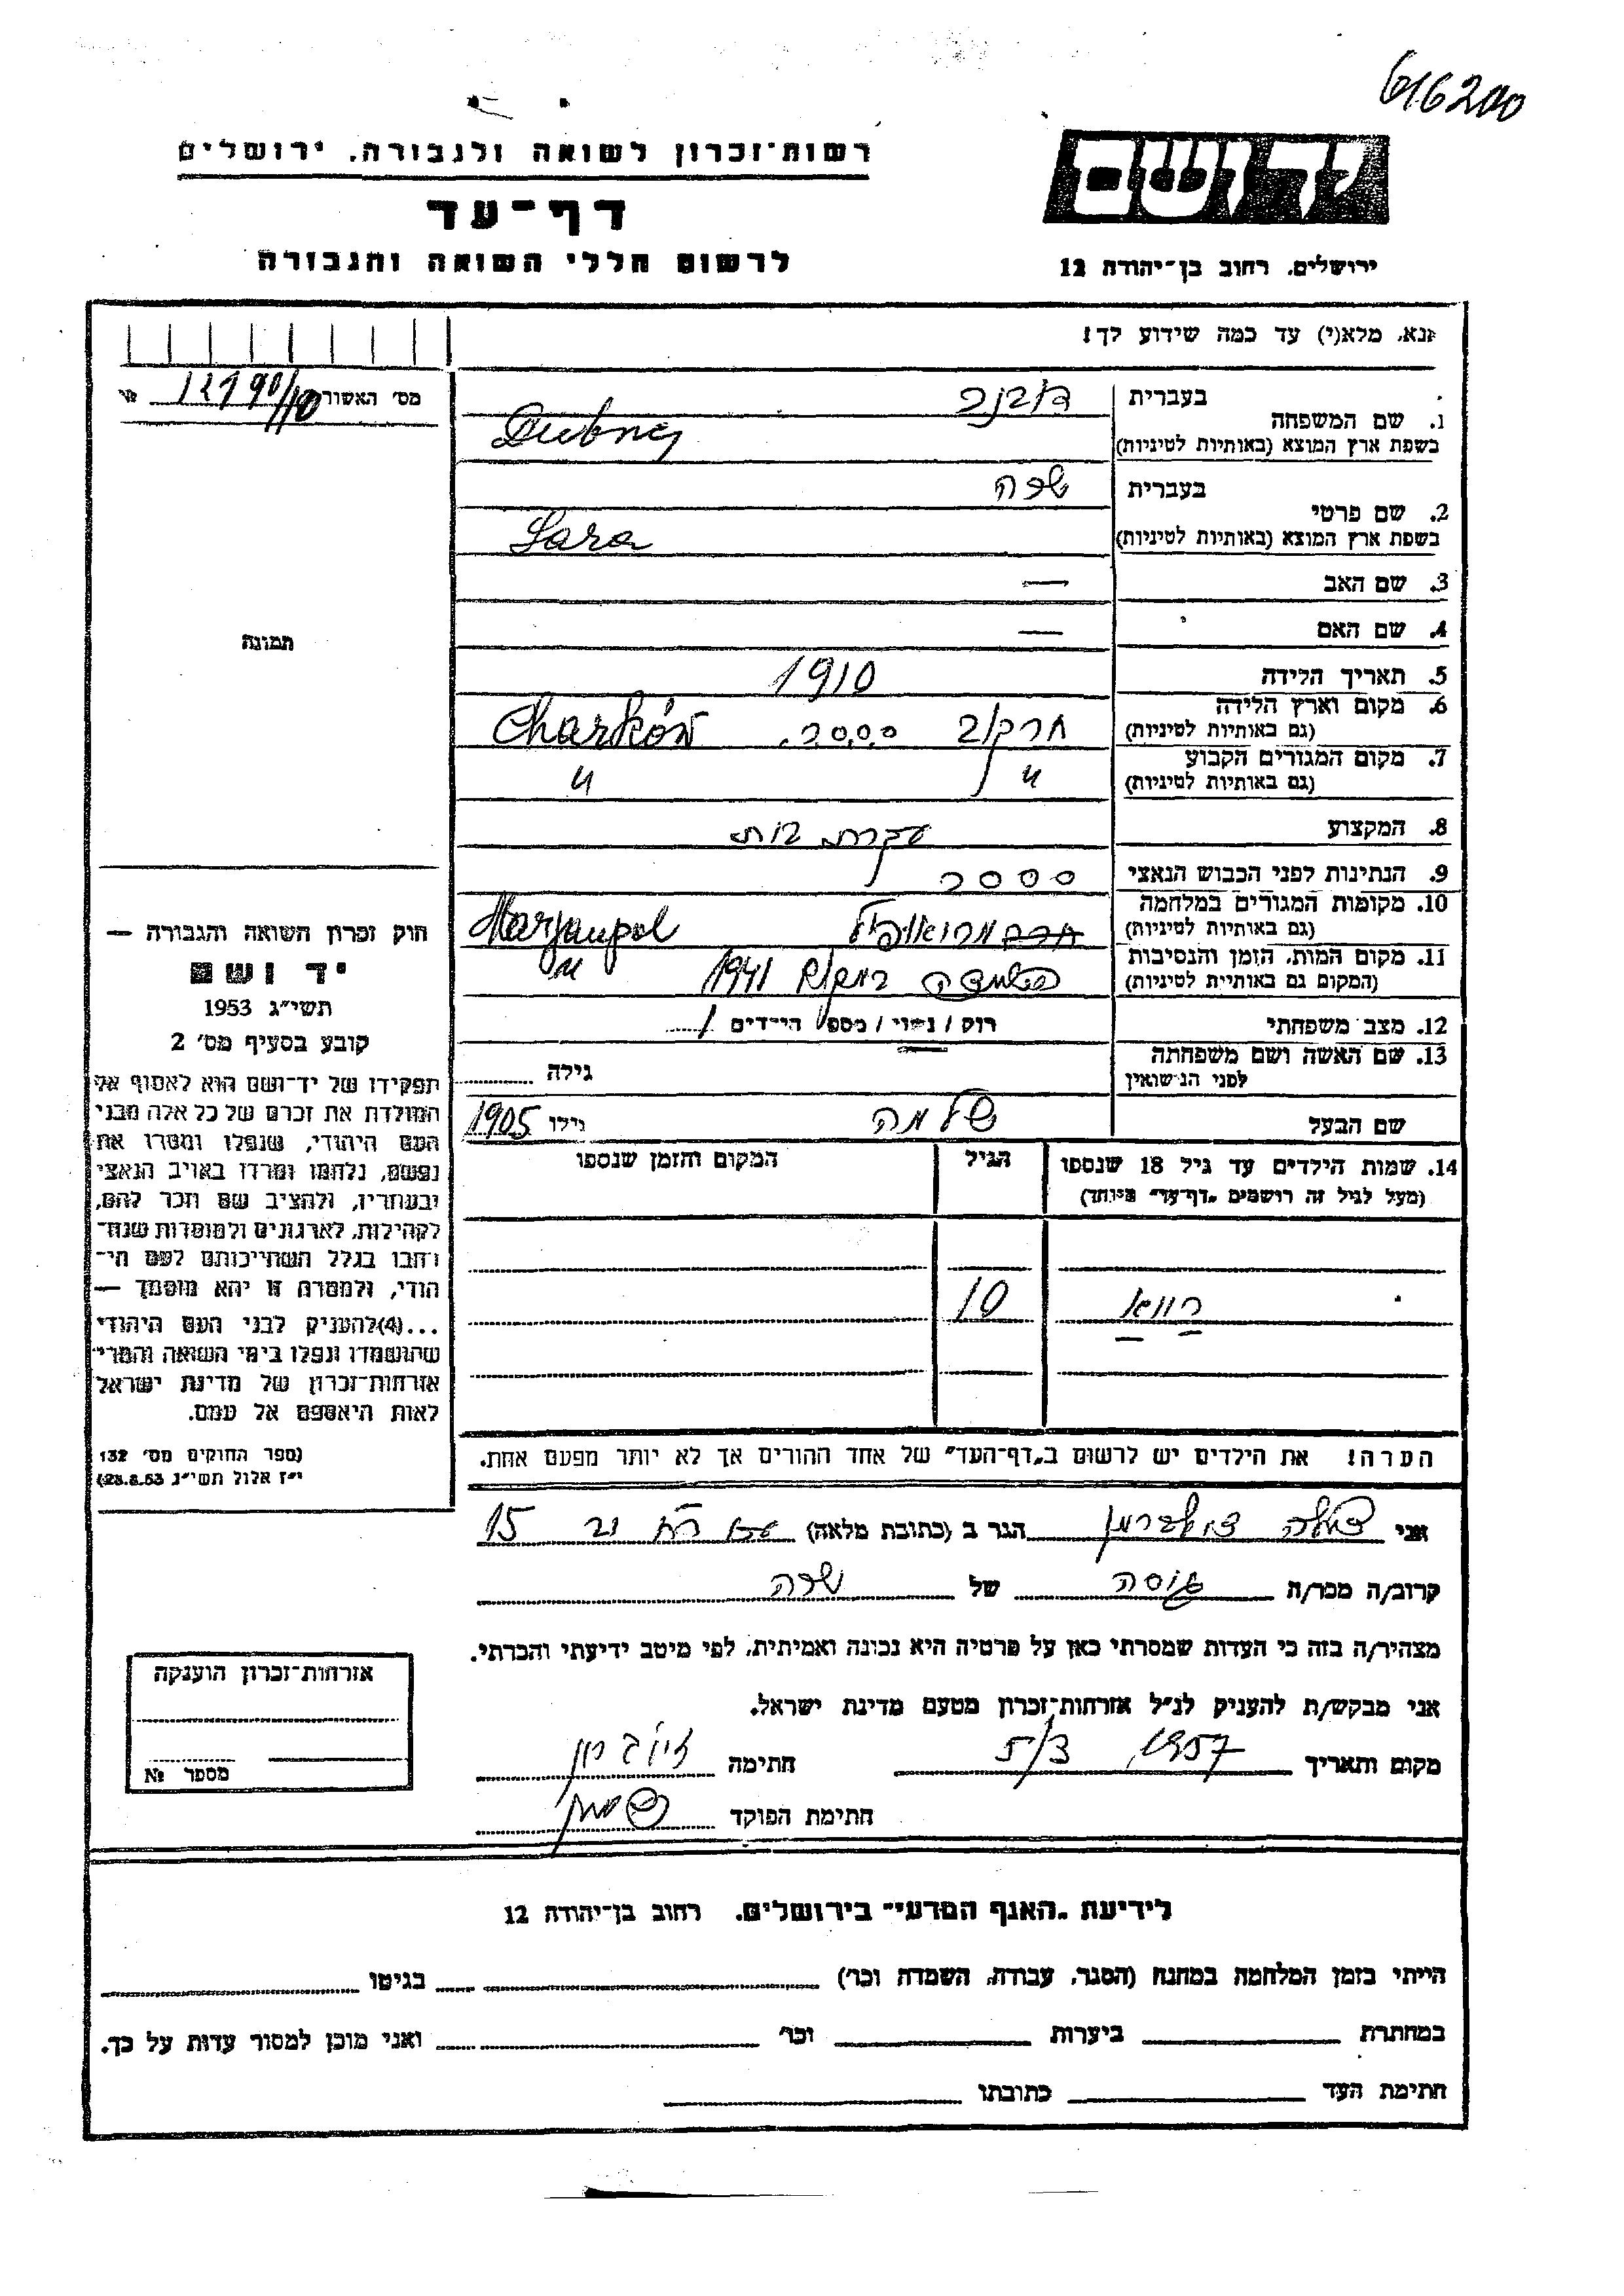 616200
רשות־זכרון לשואה ולגבורה, ירושלים
יד ושם
דף־עד
לרשום חללי השואה והגבורה
ירושלים, רחוב בן־יהודה 12
נא, מלא(י) עד כמה שידוע לך!
מס׳ האשור
1. שם המשפחה
בעברית
בשפת ארץ המוצא (באותיות לטיניות)
2. שם פרטי
בעברית שרה
בשפת ארץ המוצא (באותיות לטיניות) Sara
3. שם האב —
4. שם האם —
תמונה
5. תאריך הלידה 1910
6. מקום וארץ הלידה
(גם באותיות לטיניות) Charków
7. מקום המגורים הקבוע
(גם באותיות לטיניות) " "
8. המקצוע עקרת בית
9. הנתינות לפני הכבוש הנאצי
10. מקומות המגורים במלחמה
(גם באותיות לטיניות) Marjaupol
11. מקום המות, הזמן והנסיבות
(המקום גם באותיית לטיניות) 1941 "
12. מצב משפחתי רוק / נשוי / מספר הילדים 1
13. שם האשה ושם משפחתה
לפני הנישואין גילה
שם הבעל שלמה גילו 1905
14. שמות הילדים עד גיל 18 שנספו
(מעל לגיל זה רושמים „דף־עד״ מיוחד)
הגיל
המקום והזמן שנספו
10
הערה! את הילדים יש לרשום ב„דף־העד״ של אחד ההורים אך לא יותר מפעם אחת.
חוק זכרון השואה והגבורה —
יד ושם
תשי״ג 1953
קובע בסעיף מס׳ 2
תפקידו של יד־ושם הוא לאסוף אל
המולדת את זכרם של כל אלה מבני
העם היהודי, שנפלו ומסרו את
נפשם, נלחמו ומרדו באויב הנאצי
ובעוזריו, ולהציב שם וזכר להם,
לקהילות, לארגונים ולמוסדות שנח־
רבו בגלל השתייכותם לעם הי־
הודי, ולמטרה זו יהא מוסמך —
...(4)להעניק לבני העם היהודי
שהושמדו ונפלו בימי השואה והמרי
אזרחות־זכרון של מדינת ישראל
לאות היאספם אל עמם.
(ספר החוקים מס׳ 132
י״ז אלול תשי״ג 28.8.53)
אני הגר ב (כתובת מלאה) 15
קרוב/ה מכר/ה גיסה של שרה
מצהיר/ה בזה כי העדות שמסרתי כאן על פרטיה היא נכונה ואמיתית, לפי מיטב ידיעתי והכרתי.
אני מבקש/ת להעניק לנ״ל אזרחות־זכרון מטעם מדינת ישראל.
מקום ותאריך 1957 חתימה
חתימת הפוקד
אזרחות־זכרון הוענקה
מספר №
לידיעת „האגף המדעי״ בירושלים, רחוב בן־יהודה 12
הייתי בזמן המלחמה במחנה (הסגר, עבודה, השמדה וכו׳) בגיטו
במחתרת ביערות וכו׳ ואני מוכן למסור עדות על כך.
חתימת העד כתובתו